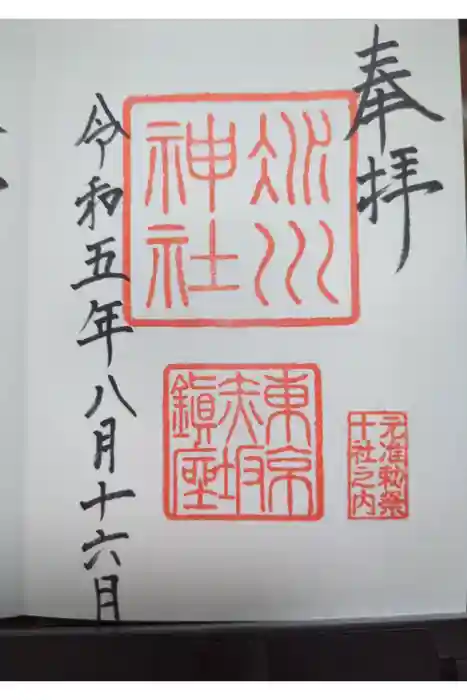 奉拝
氷川
神社
東京
赤坂
鎮座
元准勅祭
十社之内
令和五年八月十六日